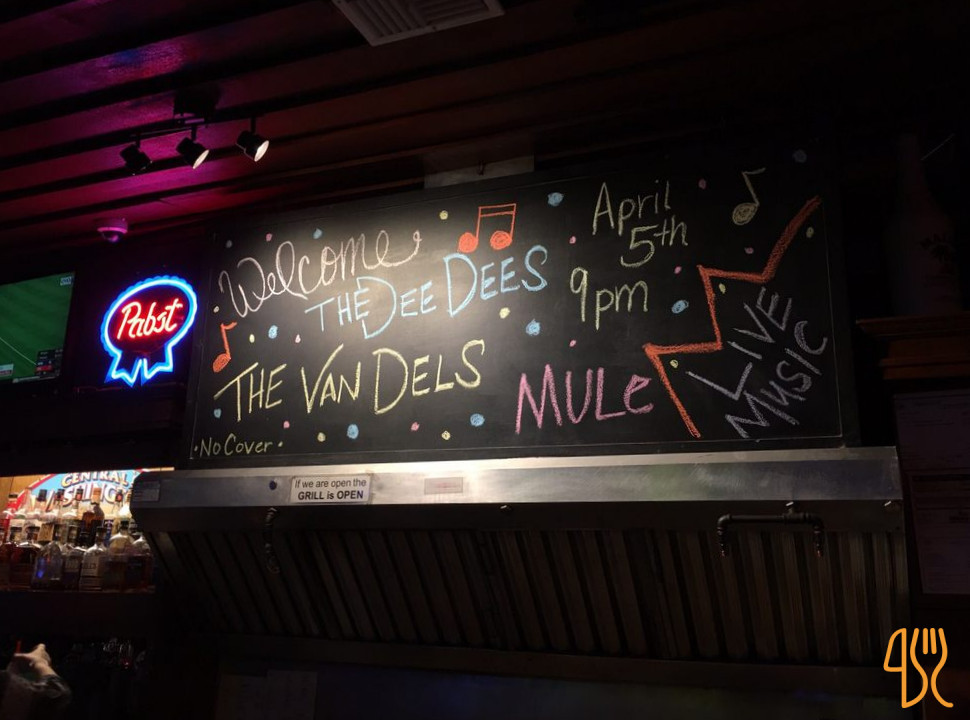 Welcome
THE DEE DEES
THE VAN DELS
MULe
April
5th
9pm
LIVE
MUSIC
•No Cover•
Pabst
If we are open the
GRILL is OPEN
CENTRAL